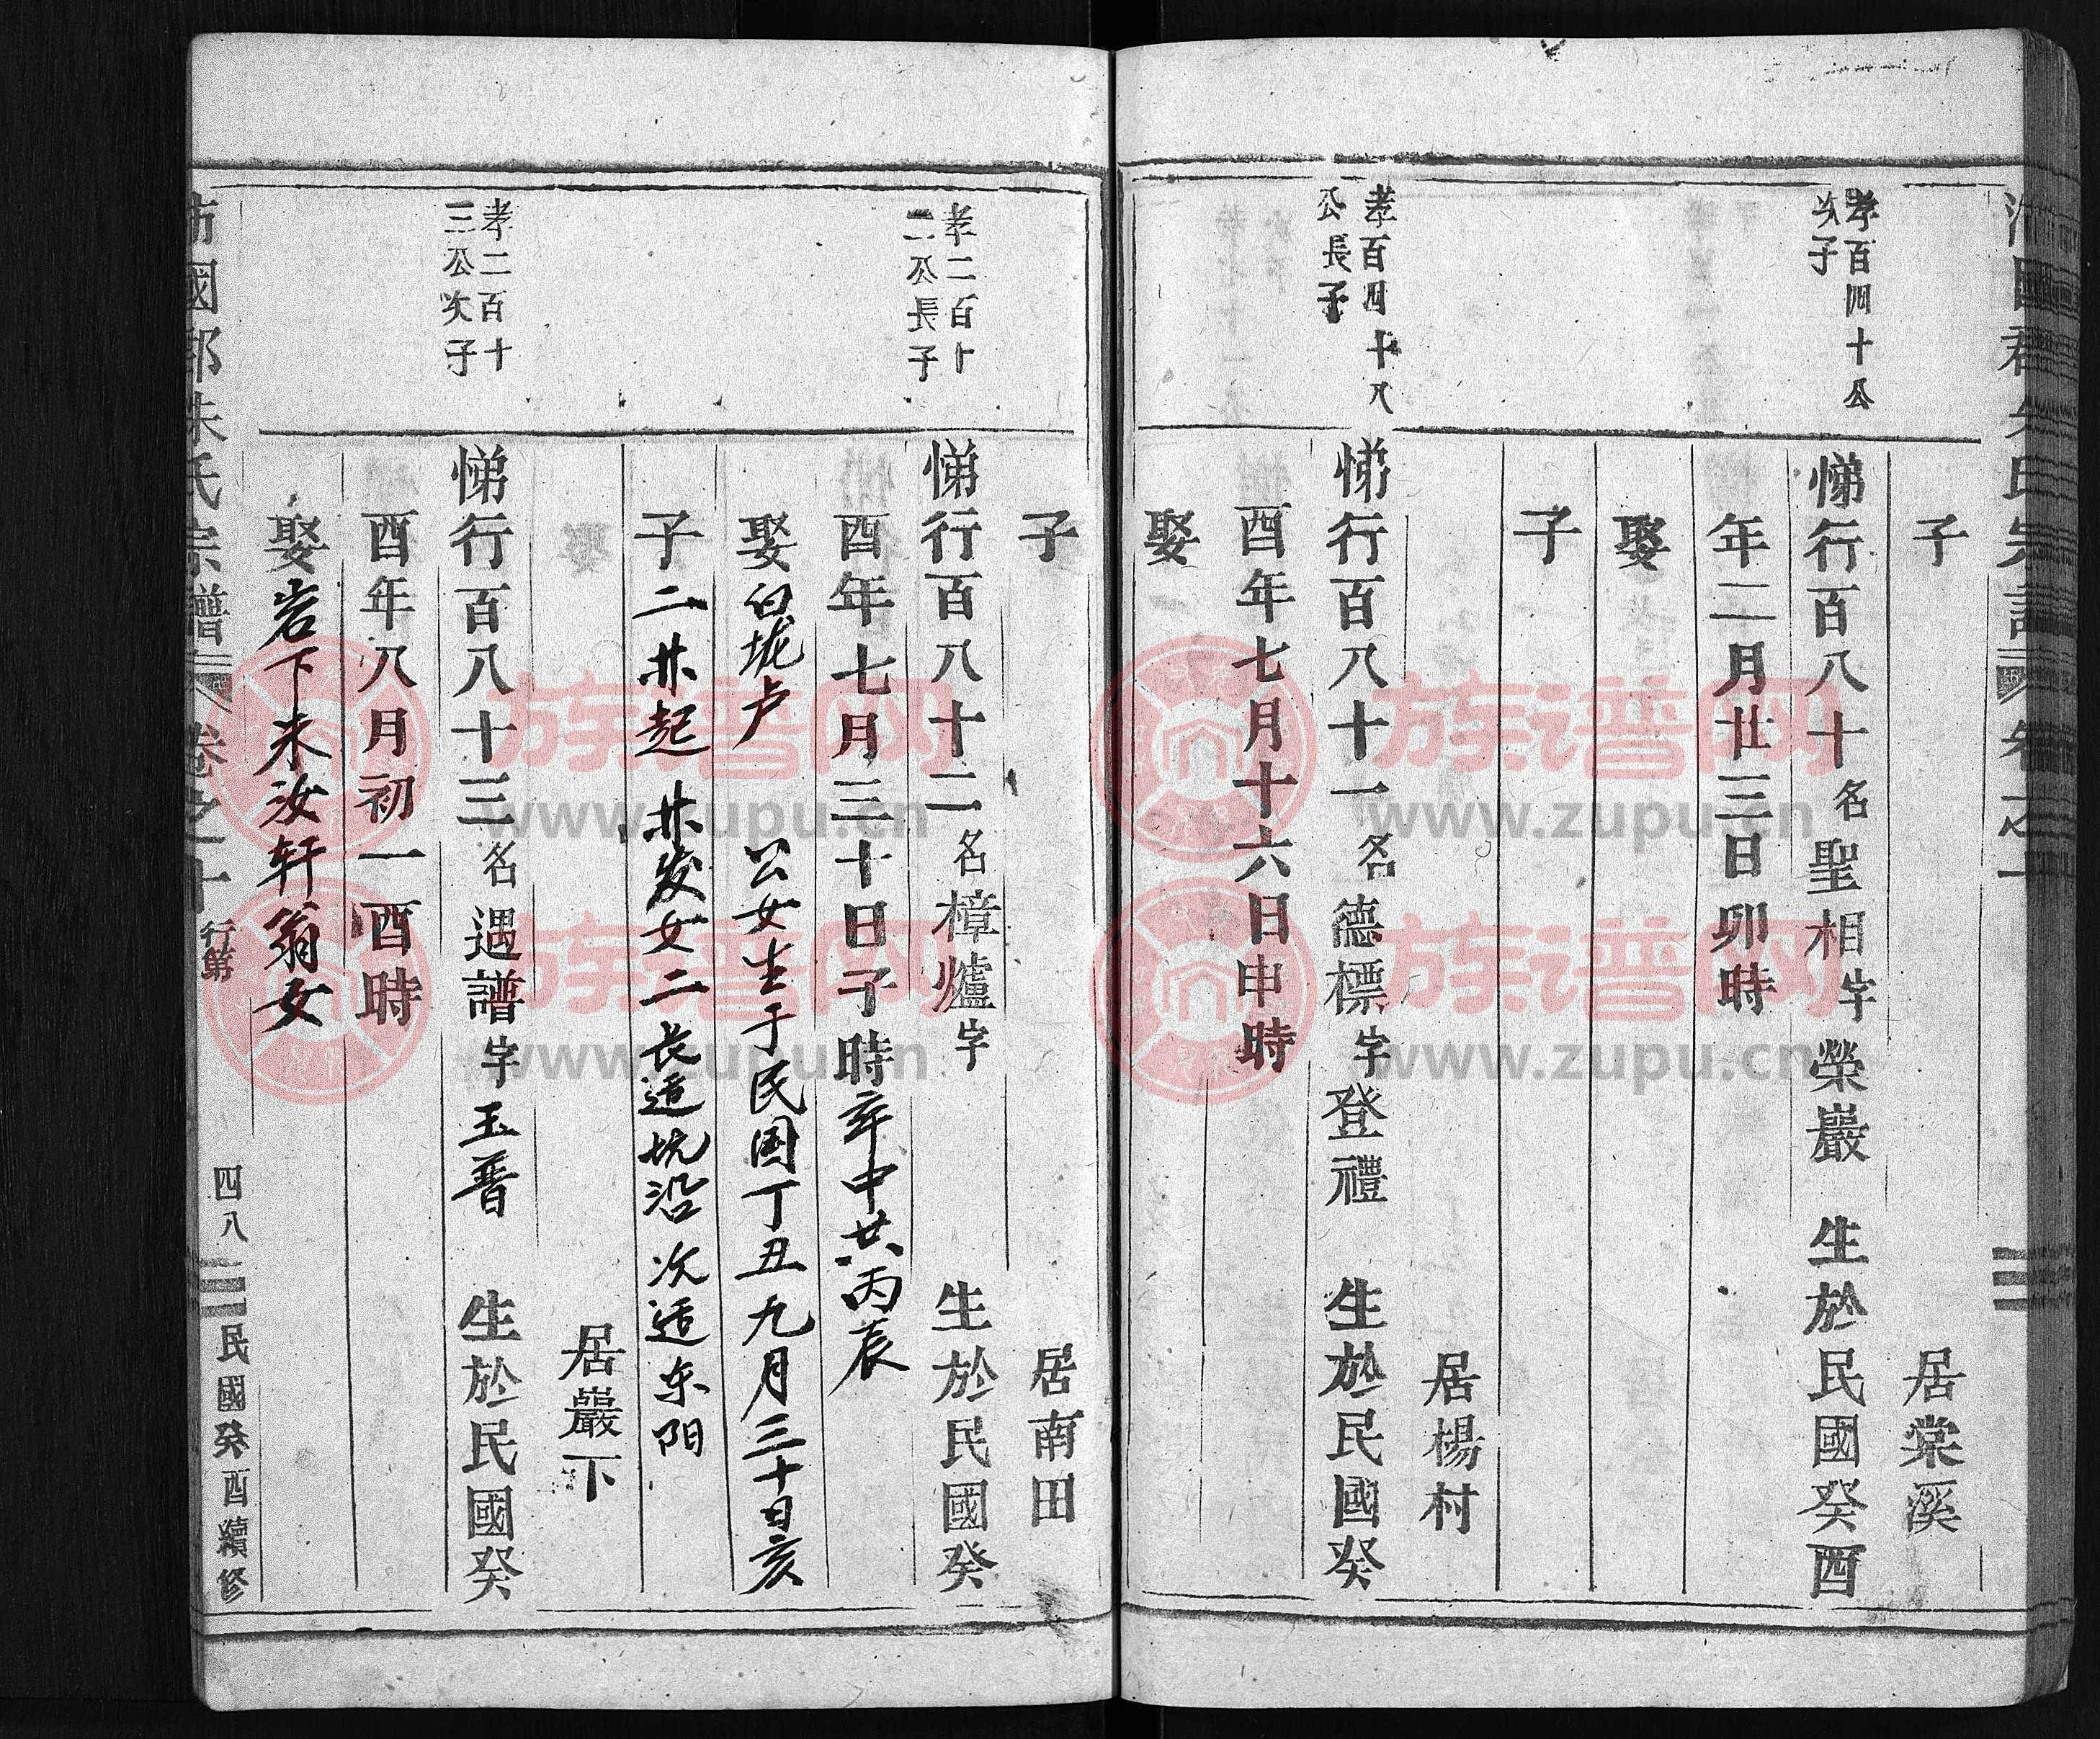 子
居棠溪
孝百四十公
次子
悌行百八十名聖相字榮巖 生於民國癸酉
年二月廿三日卯時
娶
子
居楊村
孝百四十八
公長子
悌行百八十一名德標字登禮 生於民國癸
酉年七月十六日申時
娶
子
居南田
孝二百十
二公長子
悌行百八十二名樟爐字 生於民國癸
酉年七月三十日子時卒中共丙辰
娶白坨卢 公女生于民国丁丑九月三十日亥
子二 起 发女二长适坑沿 次适东阳
居巖下
孝二百十
三公次子
悌行百八十三名遇譜字玉晋 生於民國癸
酉年八月初一酉時
娶岩下朱汝轩翁女
沛國郡朱氏宗譜 卷之十 行第 四八 民國癸酉續修
族谱网
www.zupu.cn
族谱网
www.zupu.cn
族谱网
www.zupu.cn
族谱网
www.zupu.cn